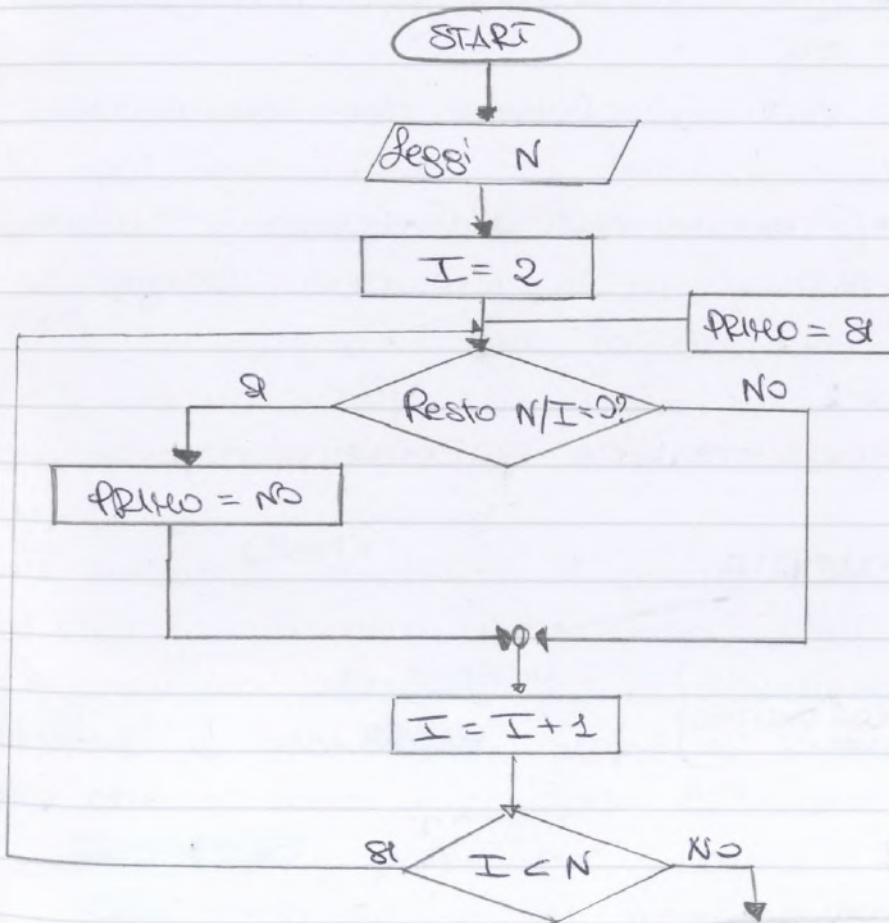 START
Leggi N
I = 2
PRIMO = SI
Resto N/I=0?
SI
NO
PRIMO = NO
I = I + 1
I < N
SI
NO